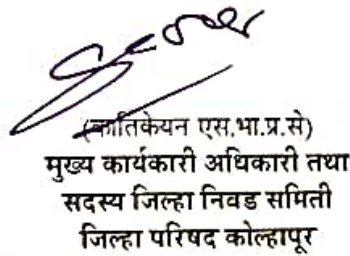 (कार्तिकेयन एस.भा.प्र.से)
मुख्य कार्यकारी अधिकारी तथा
सदस्य जिल्हा निवड समिती
जिल्हा परिषद कोल्हापूर